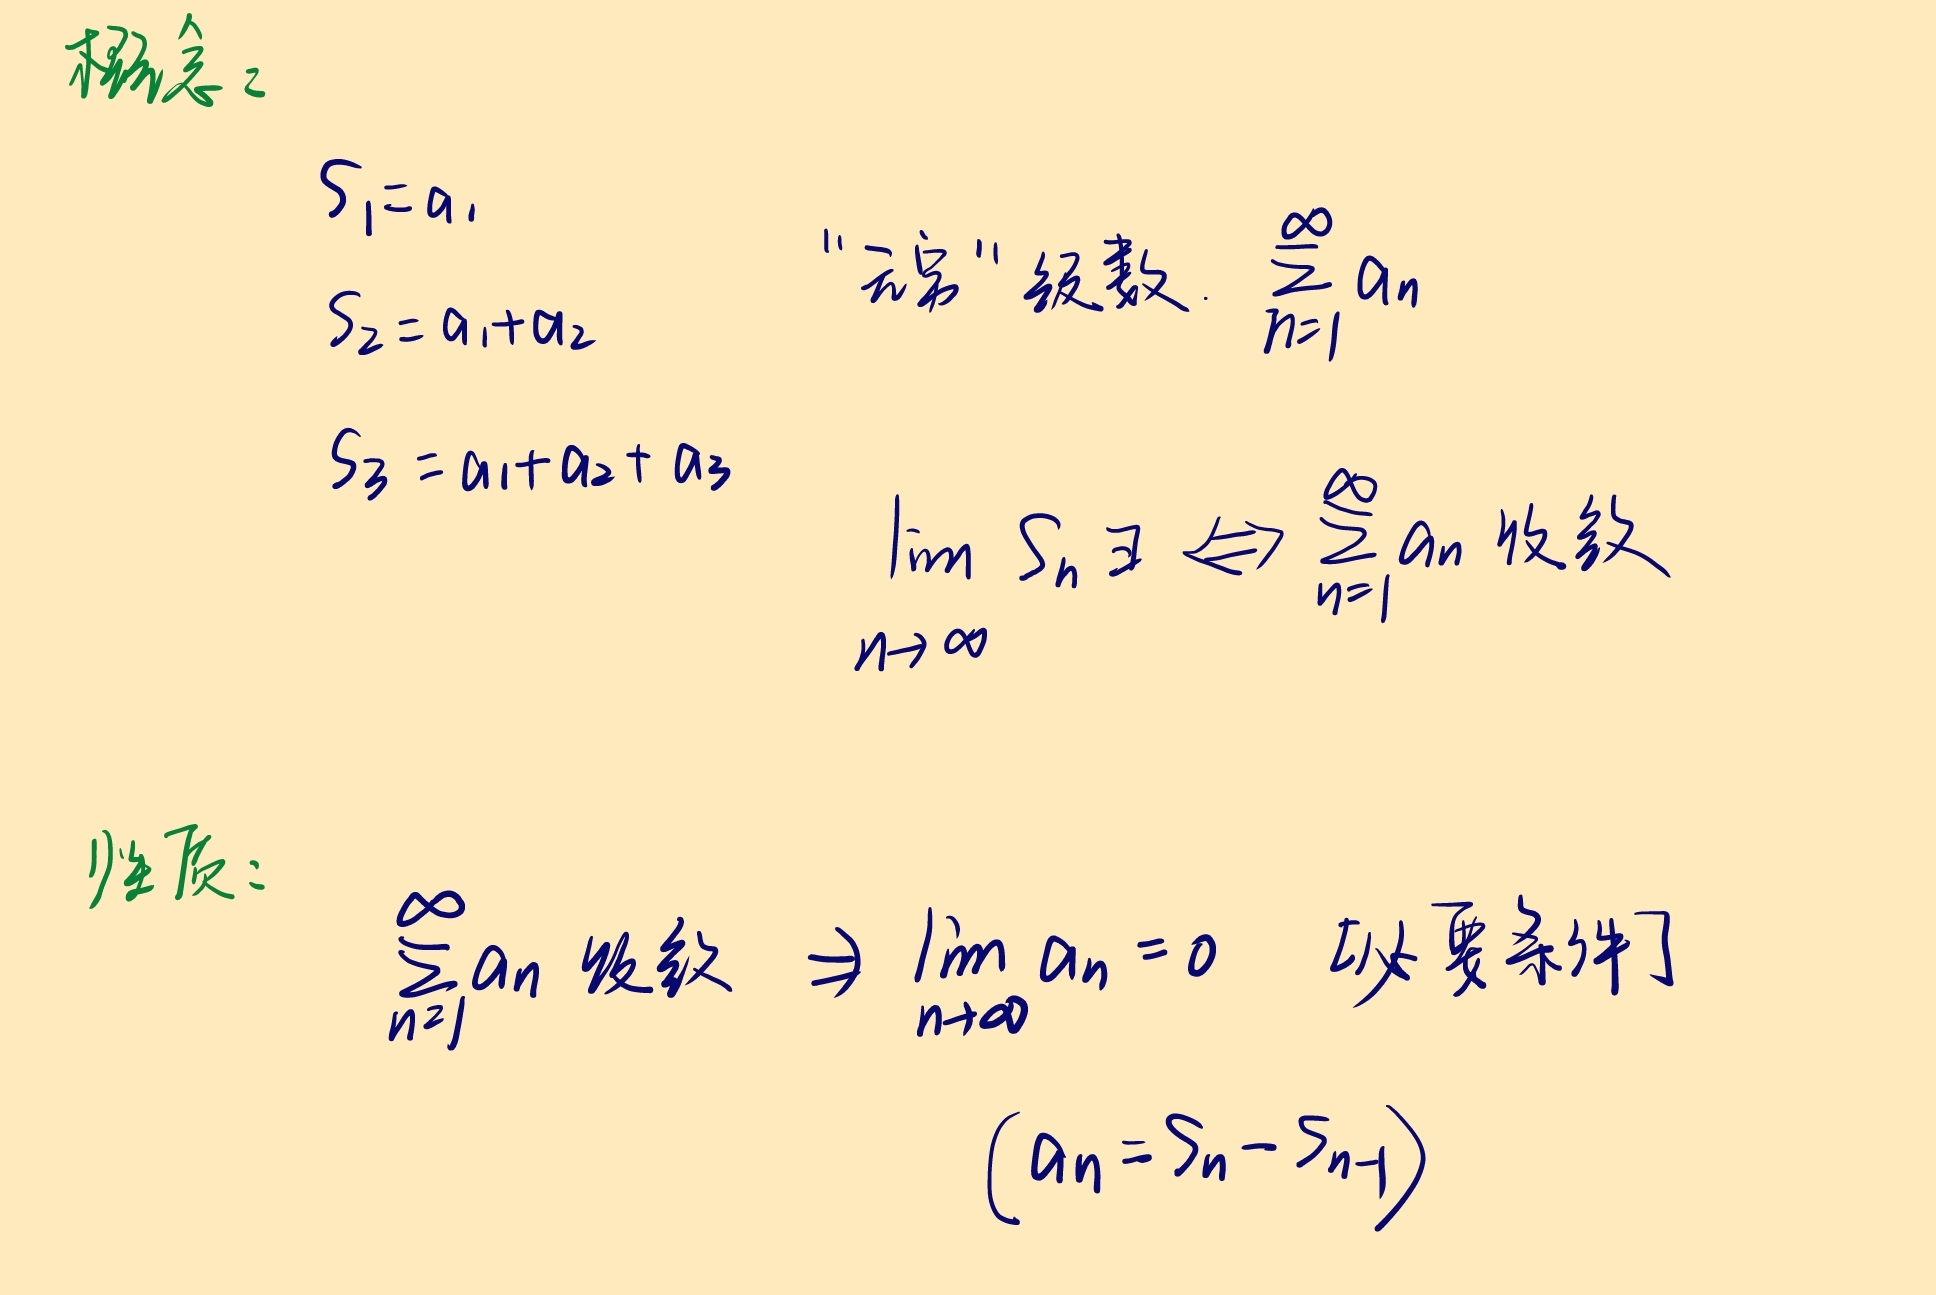 概念：
S₁=a₁
S₂=a₁+a₂
S₃=a₁+a₂+a₃
"无穷"级数. ∑_{n=1}^{∞} aₙ
lim_{n→∞} Sₙ ∃ ⇔ ∑_{n=1}^{∞} aₙ 收敛
性质：
∑_{n=1}^{∞} aₙ 收敛 ⇒ lim_{n→∞} aₙ=0 [必要条件]
(aₙ=Sₙ-Sₙ₋₁)